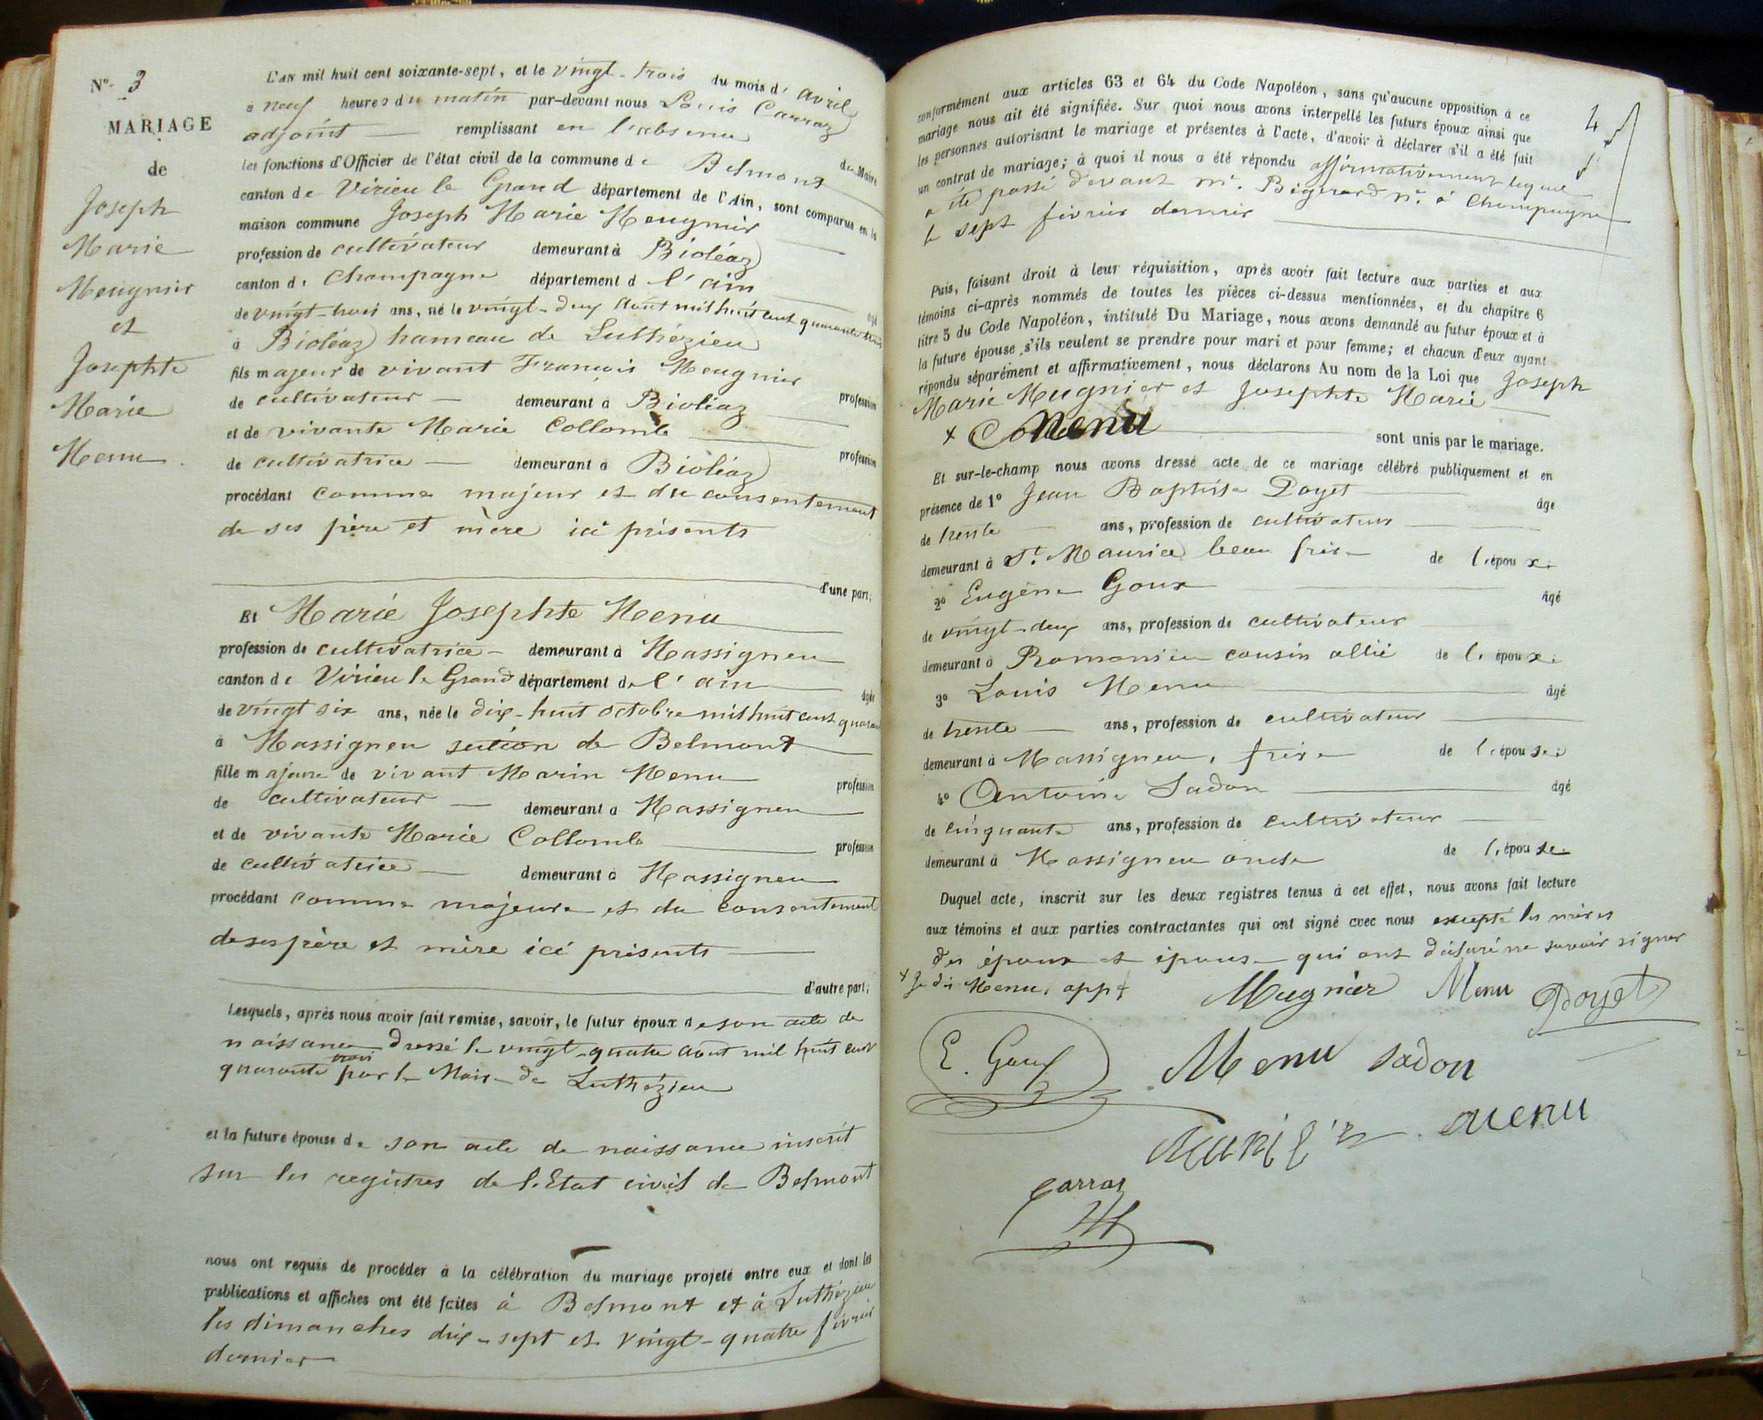 N° 3
MARIAGE
de
Joseph
Marie
Meugnier
et
Josephte
Marie
Menu.
L'AN mil huit cent soixante-sept, et le vingt-trois du mois d' avril
à neuf heures du matin par-devant nous Louis Carraz
adjoint remplissant en l'absence du Maire
les fonctions d'Officier de l'état civil de la commune de Belmont
canton de Virieu le Grand département de l'Ain, sont comparus en la
maison commune Joseph Marie Meugnier
profession de cultivateur demeurant à Bioléaz
canton de Champagne département d l'ain âgé
de vingt-trois ans, né le vingt-deux aout mil huit cent quarante trois
à Bioléaz hameau de Luthézieu
fils majeur de vivant François Meugnier profession
de cultivateur demeurant à Bioléaz
et de vivante Marie Collomb profession
de cultivatrice demeurant à Bioléaz
procédant comme majeur et du consentement
de ses père et mère ici présents
d'une part;
Et Marie Josephte Menu
profession de cultivatrice demeurant à Massigneu
canton de Virieu le Grand département de l'ain âgée
de vingt six ans, née le dix-huit octobre mil huit cent quarante
à Massigneu section de Belmont
fille majeure de vivant Marin Menu profession
de cultivateur demeurant à Massigneu
et de vivante Marie Collomb profession
de cultivatrice demeurant à Massigneu
procédant comme majeure et du consentement
de ses père et mère ici présents
d'autre part;
Lesquels, après nous avoir fait remise, savoir, le futur époux de son acte de
naissance dressé le vingt-quatre aout mil huit cent
quarante trois par le Maire de Luthézieu
et la future épouse de son acte de naissance inscrit
sur les registres de l'Etat civil de Belmont
nous ont requis de procéder à la célébration du mariage projeté entre eux et dont les
publications et affiches ont été faites à Belmont et à Luthézieu
les dimanches dix-sept et vingt-quatre février
dernier
4
conformément aux articles 63 et 64 du Code Napoléon, sans qu'aucune opposition à ce
mariage nous ait été signifiée. Sur quoi nous avons interpellé les futurs époux ainsi que
les personnes autorisant le mariage et présentes à l'acte, d'avoir à déclarer s'il a été fait
un contrat de mariage; à quoi il nous a été répondu affirmativement lequel
a été passé devant Me. Bégerard n.re à Champagne
le sept février dernier
Puis, faisant droit à leur réquisition, après avoir fait lecture aux parties et aux
témoins ci-après nommés de toutes les pièces ci-dessus mentionnées, et du chapitre 6
titre 5 du Code Napoléon, intitulé Du Mariage, nous avons demandé au futur époux et à
la future épouse s'ils veulent se prendre pour mari et pour femme; et chacun d'eux ayant
répondu séparément et affirmativement, nous déclarons Au nom de la Loi que Joseph
Marie Meugnier et Josephte Marie
x Menu sont unis par le mariage.
Et sur-le-champ nous avons dressé acte de ce mariage célébré publiquement et en
présence de 1° Jean Baptiste Doyet âgé
de trente ans, profession de cultivateur
demeurant à St. Maurice beau frère de l'époux.
2° Eugène Goux âgé
de vingt-deux ans, profession de cultivateur
demeurant à Romanieu cousin allié de l'époux.
3° Louis Menu âgé
de trente ans, profession de cultivateur
demeurant à Massigneu, frère de l'épouse.
4° Antoine Sadon âgé
de cinquante ans, profession de cultivateur
demeurant à Massigneu oncle de l'épouse
Duquel acte, inscrit sur les deux registres tenus à cet effet, nous avons fait lecture
aux témoins et aux parties contractantes qui ont signé avec nous excepté les mères
des époux et épouse qui ont déclaré ne savoir signer
x Je dis Menu, app.t
Mugnier Menu Doyet
E. Goux Menu sadon
menu
Carraz